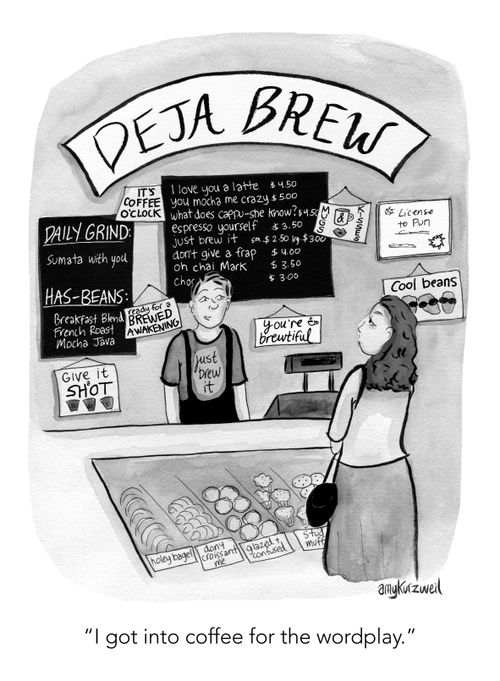 DEJA BREW
IT'S
COFFEE
O'CLOCK
I love you a latte $4.50
you mocha me crazy $5.00
what does cappu-she know? $4.50
espresso yourself $3.50
just brew it sm $2.50 lg $3.00
don't give a frap $4.00
oh chai Mark $3.50
$3.00
MUGS
&
KISSES
License
to Pun
DAILY GRIND:
Sumata with you
HAS-BEANS:
Breakfast Blend
French Roast
Mocha Java
ready for a
BREWED
AWAKENING
you're
brewtiful
Cool beans
Give it
a
SHOT
just
brew
it
holey bagel
don't
croissant
me
glazed +
confused
stud
muff
amykurzweil
“I got into coffee for the wordplay.”